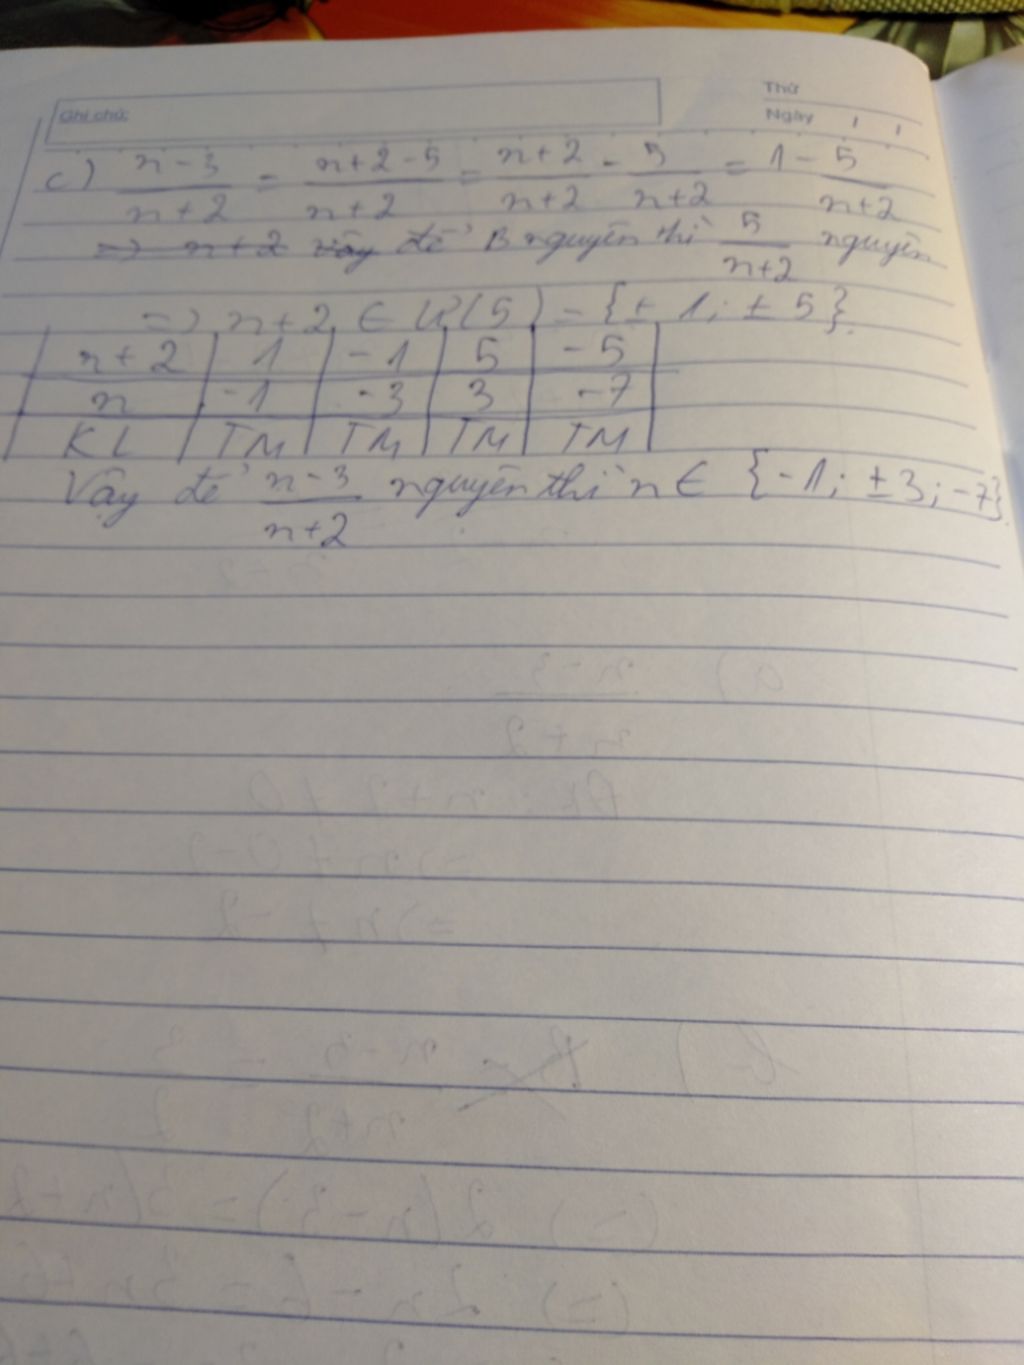 Thứ
Ghi chú:
Ngày / /
c) \frac{n-3}{n+2} = \frac{n+2-5}{n+2} = \frac{n+2}{n+2} - \frac{5}{n+2} = 1 - \frac{5}{n+2}
=> n+2 vậy để B nguyên thì \frac{5}{n+2} nguyên
=> n+2 ∈ Ư(5) = {± 1; ± 5}.
n+2 | 1 | -1 | 5 | -5
n | -1 | -3 | 3 | -7
KL | TM | TM | TM | TM
Vậy để \frac{n-3}{n+2} nguyên thì n ∈ {-1; ±3; -7}.